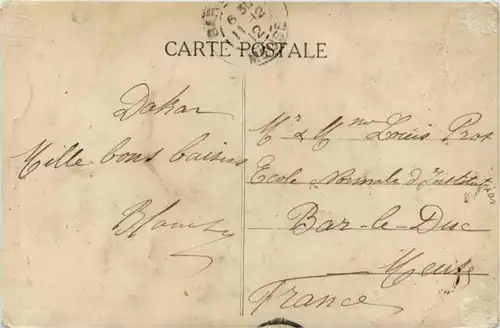 CARTE POSTALE
Dakar
Mille bons baisers
Mr & Mme Louis Prot
Ecole Normale d'Instituteurs
Bar-le-Duc
Meuse
France